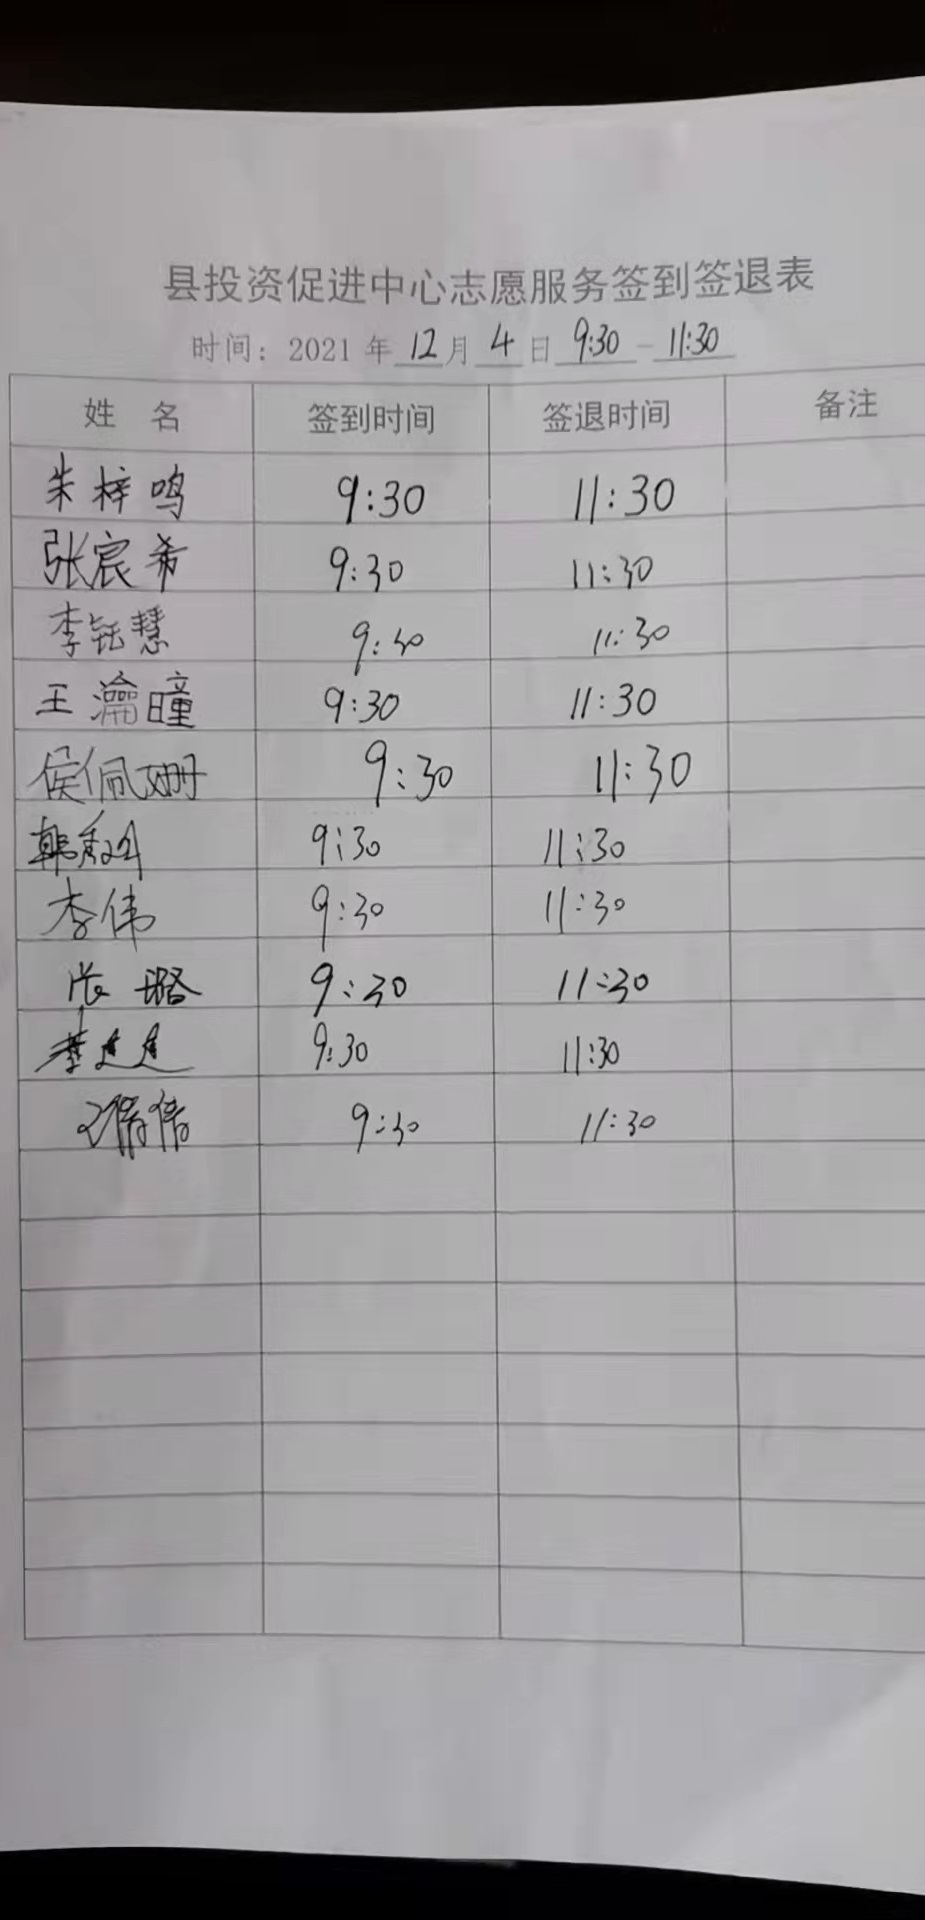 县投资促进中心志愿服务签到签退表
时间：2021年 12 月 4 日 9:30 - 11:30
姓 名 签到时间 签退时间 备注
朱梓鸣 9:30 11:30
张宸希 9:30 11:30
李钰慧 9:30 11:30
王瀹曈 9:30 11:30
侯佩姗 9:30 11:30
韩 9:30 11:30
李伟 9:30 11:30
张璐 9:30 11:30
9:30 11:30
倩倩 9:30 11:30